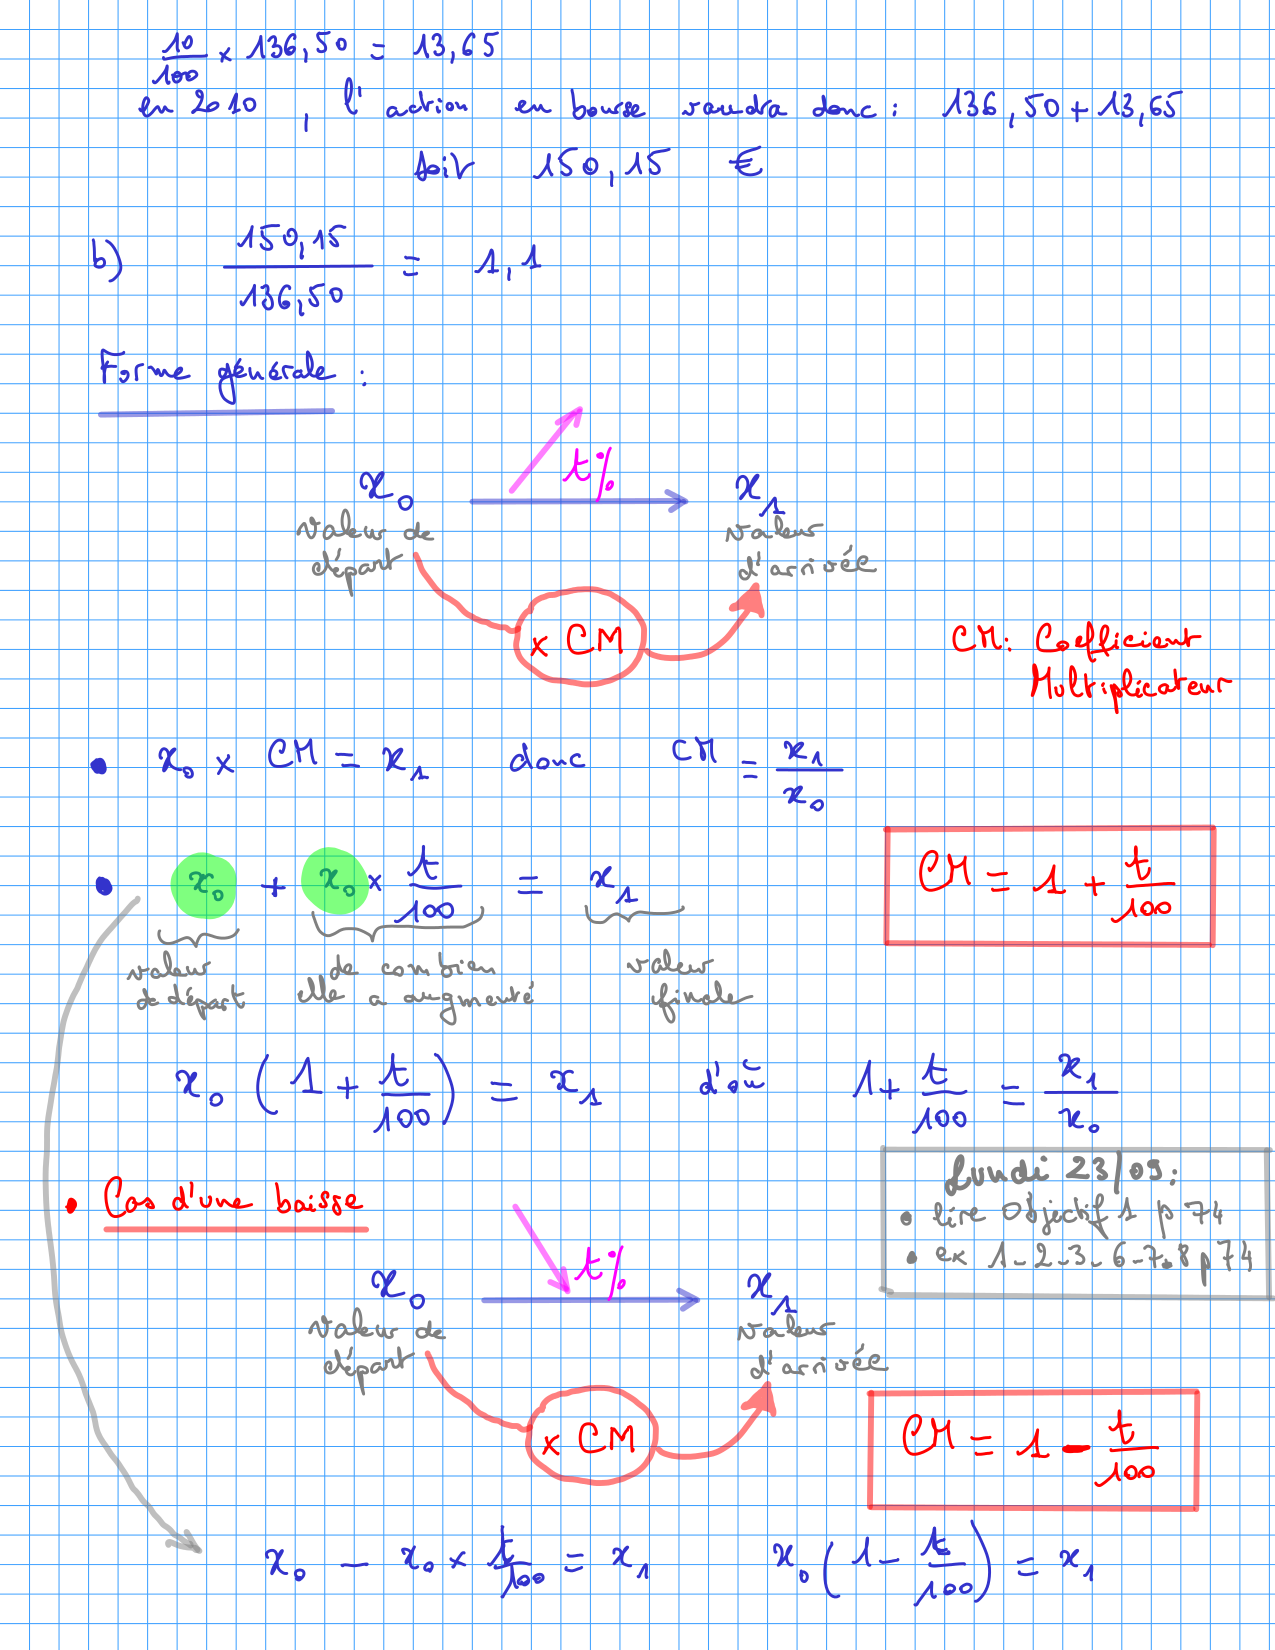 10/100 × 136,50 = 13,65
en 2010, l'action en bourse vaudra donc : 136,50 + 13,65
soit 150,15 €
b) 150,15/136,50 = 1,1
Forme générale :
x₀ t% x₁
valeur de départ
valeur d'arrivée
× CM
CM : Coefficient
Multiplicateur
• x₀ × CM = x₁ donc CM = x₁/x₀
• x₀ + x₀ × t/100 = x₁
CM = 1 + t/100
valeur de départ
de combien elle a augmenté
valeur finale
x₀ (1 + t/100) = x₁ d'où 1 + t/100 = x₁/x₀
Lundi 23/09 :
• lire Objectif 1 p 74
• ex 1-2-3-6-7-8 p 74
• Cas d'une baisse
x₀ t% x₁
valeur de départ
valeur d'arrivée
× CM
CM = 1 - t/100
x₀ - x₀ × t/100 = x₁ x₀ (1 - t/100) = x₁